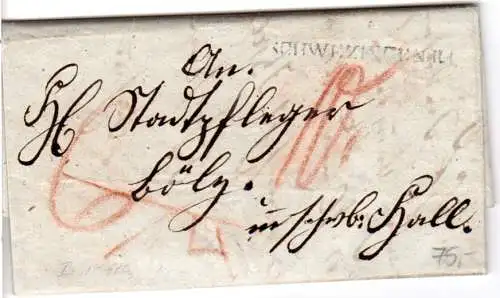 An.
H Stadtpfleger
Bölz.
in schwb: Hall.
75,-